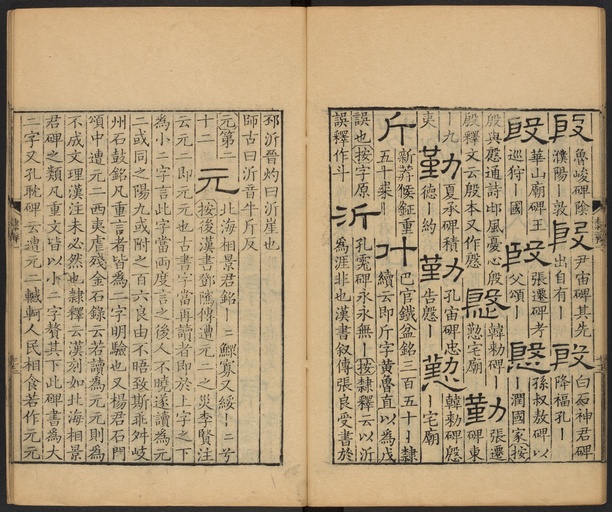 殷魯峻碑除
濮陽｜敦
殷尹宙碑其先
出自有｜
殷白石神君碑
降福孔｜
殷華山廟碑王
巡狩｜國
殷張遷碑考
父頌｜
慇孫叔敖碑以
｜潤國家按
殷與慇通詩邶風憂心殷
殷釋文云殷本又作慇
慇韓勑碑｜
懃宅廟
勤張遷
碑東
｜九
夷
勤夏承碑積
德｜約
勤孔宙碑忠
告慇｜
懃韓勑碑慇
｜宅廟
斤新莽候鉦重
五十桼｜
斤巴官鐵盆銘三百五十｜隸
續云即斤字黃魯直以為戊
誤也按字原
誤釋作斗
沂孔彪碑永永無｜按隸釋云以沂
為涯非也漢書叙傳張良受書於
邳沂晉灼曰沂崖也
師古曰沂音牛斤反
元第二
十二
元北海相景君銘｜二鰥寡又綏｜二兮
按後漢書鄧隲傳遭元二之災李賢注
云元二即元元也古書字當再讀者即於上字之下
為小二字言此字當兩度言之後人不曉遂讀為元
二或同之陽九或附之百六良由不晤致斯乖舛岐
州石鼓銘凡重言者皆為二字明驗也又楊君石門
頌中遭元二西夷虐殘金石錄云若讀為元元則為
不成文理漢注未必然也隸釋云漢刻如北海相景
君碑之類凡重文皆以小二字贅其下此碑書為大
二字又孔耽碑云遭元二轗軻人民相食若作元元